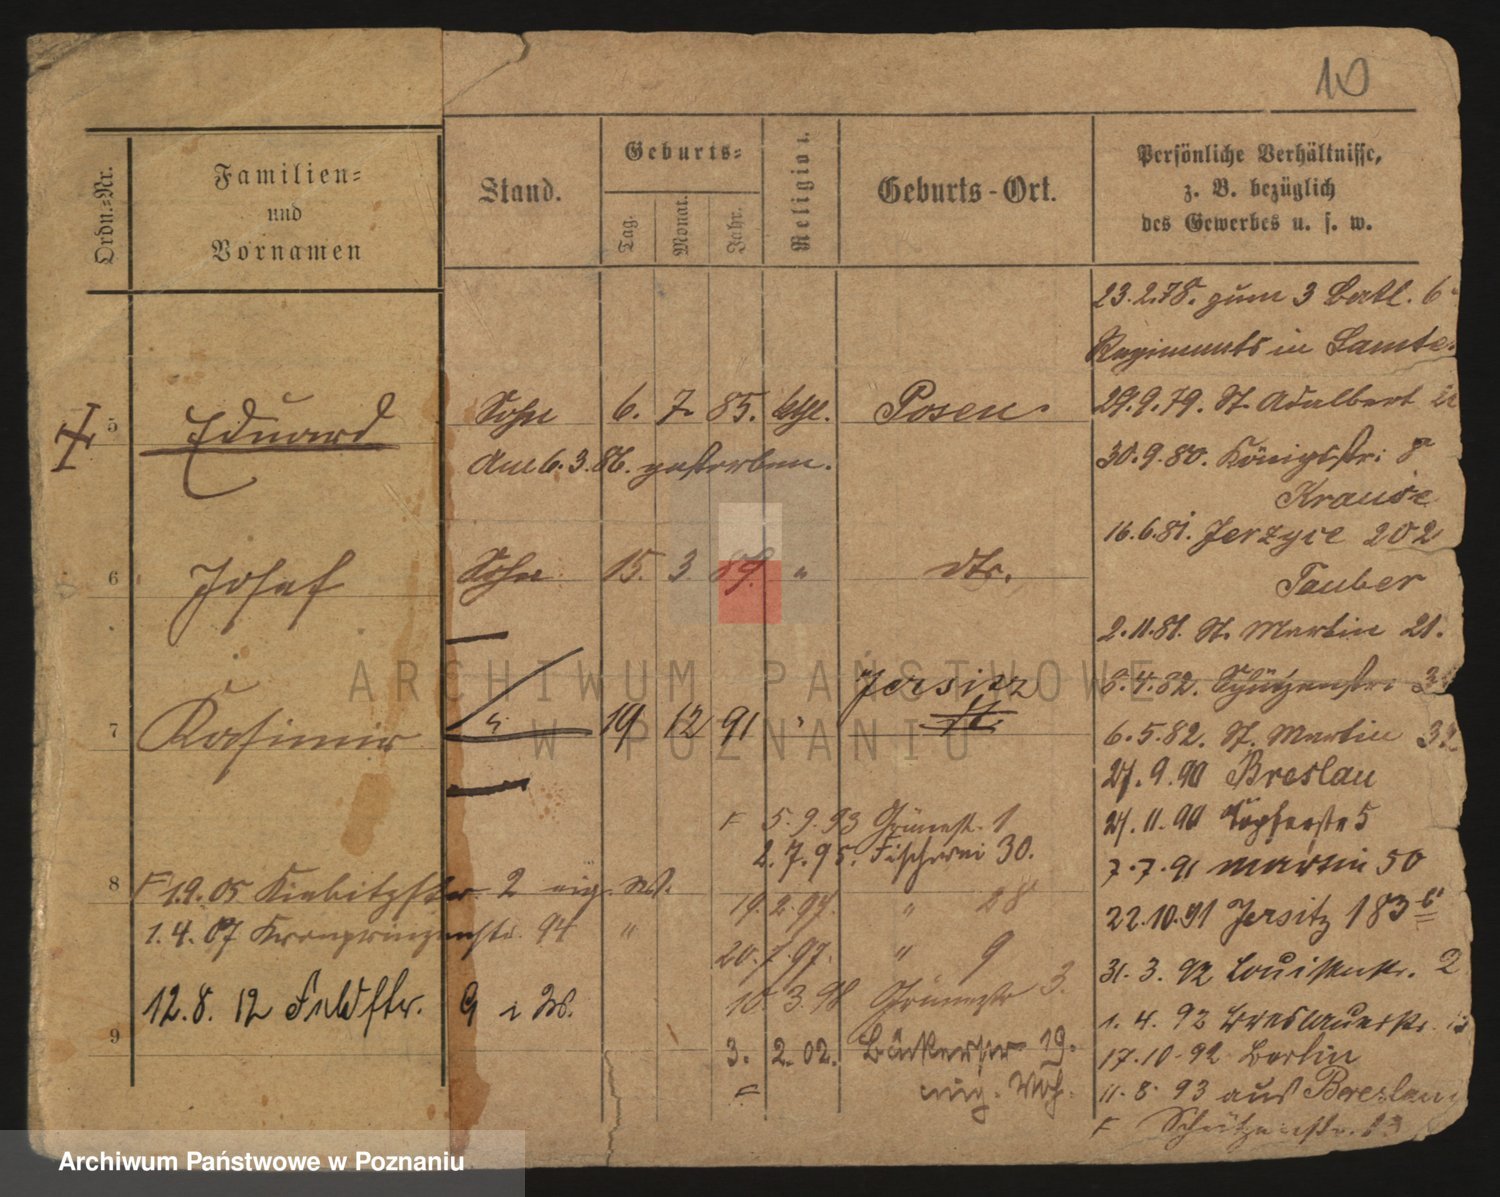 10
Ordn.-Nr.
Familien-
und
Vornamen
Stand.
Geburts-
Tag.
Monat.
Jahr.
Religion.
Geburts-Ort.
Persönliche Verhältnisse,
z. B. bezüglich
des Gewerbes u. s. w.
23.2.78. zum 3 Batl. 6
Regiments in Samter
5 Eduard Sohn 6. 7. 85. kthl. Posen.
Am 6.3.86. gestorben.
29.9.79. St. Adalbert
30.9.80. Königsstr: 8
Krause
16.6.81. Jerzyce 202
Tauber
6 Josef Sohn 15. 3. 89. " dto.
2.11.81. St. Martin 21.
8.4.82. Schützenstr:
7 Kasimir " 19 12 91 " Jersitz
6.5.82. St. Martin
27.9.90 Breslau
27.11.90 Töpferstr 5
7.7.91 Martin 50
22.10.91 Jersitz 183
31.3.92 Louisenstr. 2
1.4.92 Breslauerstr.
17.10.92 Berlin
11.8.93 aus Breslau
F Schützenstr.
F 5.9.93 Grünestr. 1
2.7.95. Fischerei 30.
19.2.97. " 28
20.7.97. " 9
10.3.98 Grünestr 3.
3.2.02. Bäckerstr 19.
F eig. Woh.
8 F 1.9.05 Kiebitzstr 2 eig. W.
1.4.07 Kronprinzenstr. 94 "
12.8.12 Feldstr. 9 i W.
9
ARCHIWUM PAŃSTWOWE
W POZNANIU
Archiwum Państwowe w Poznaniu